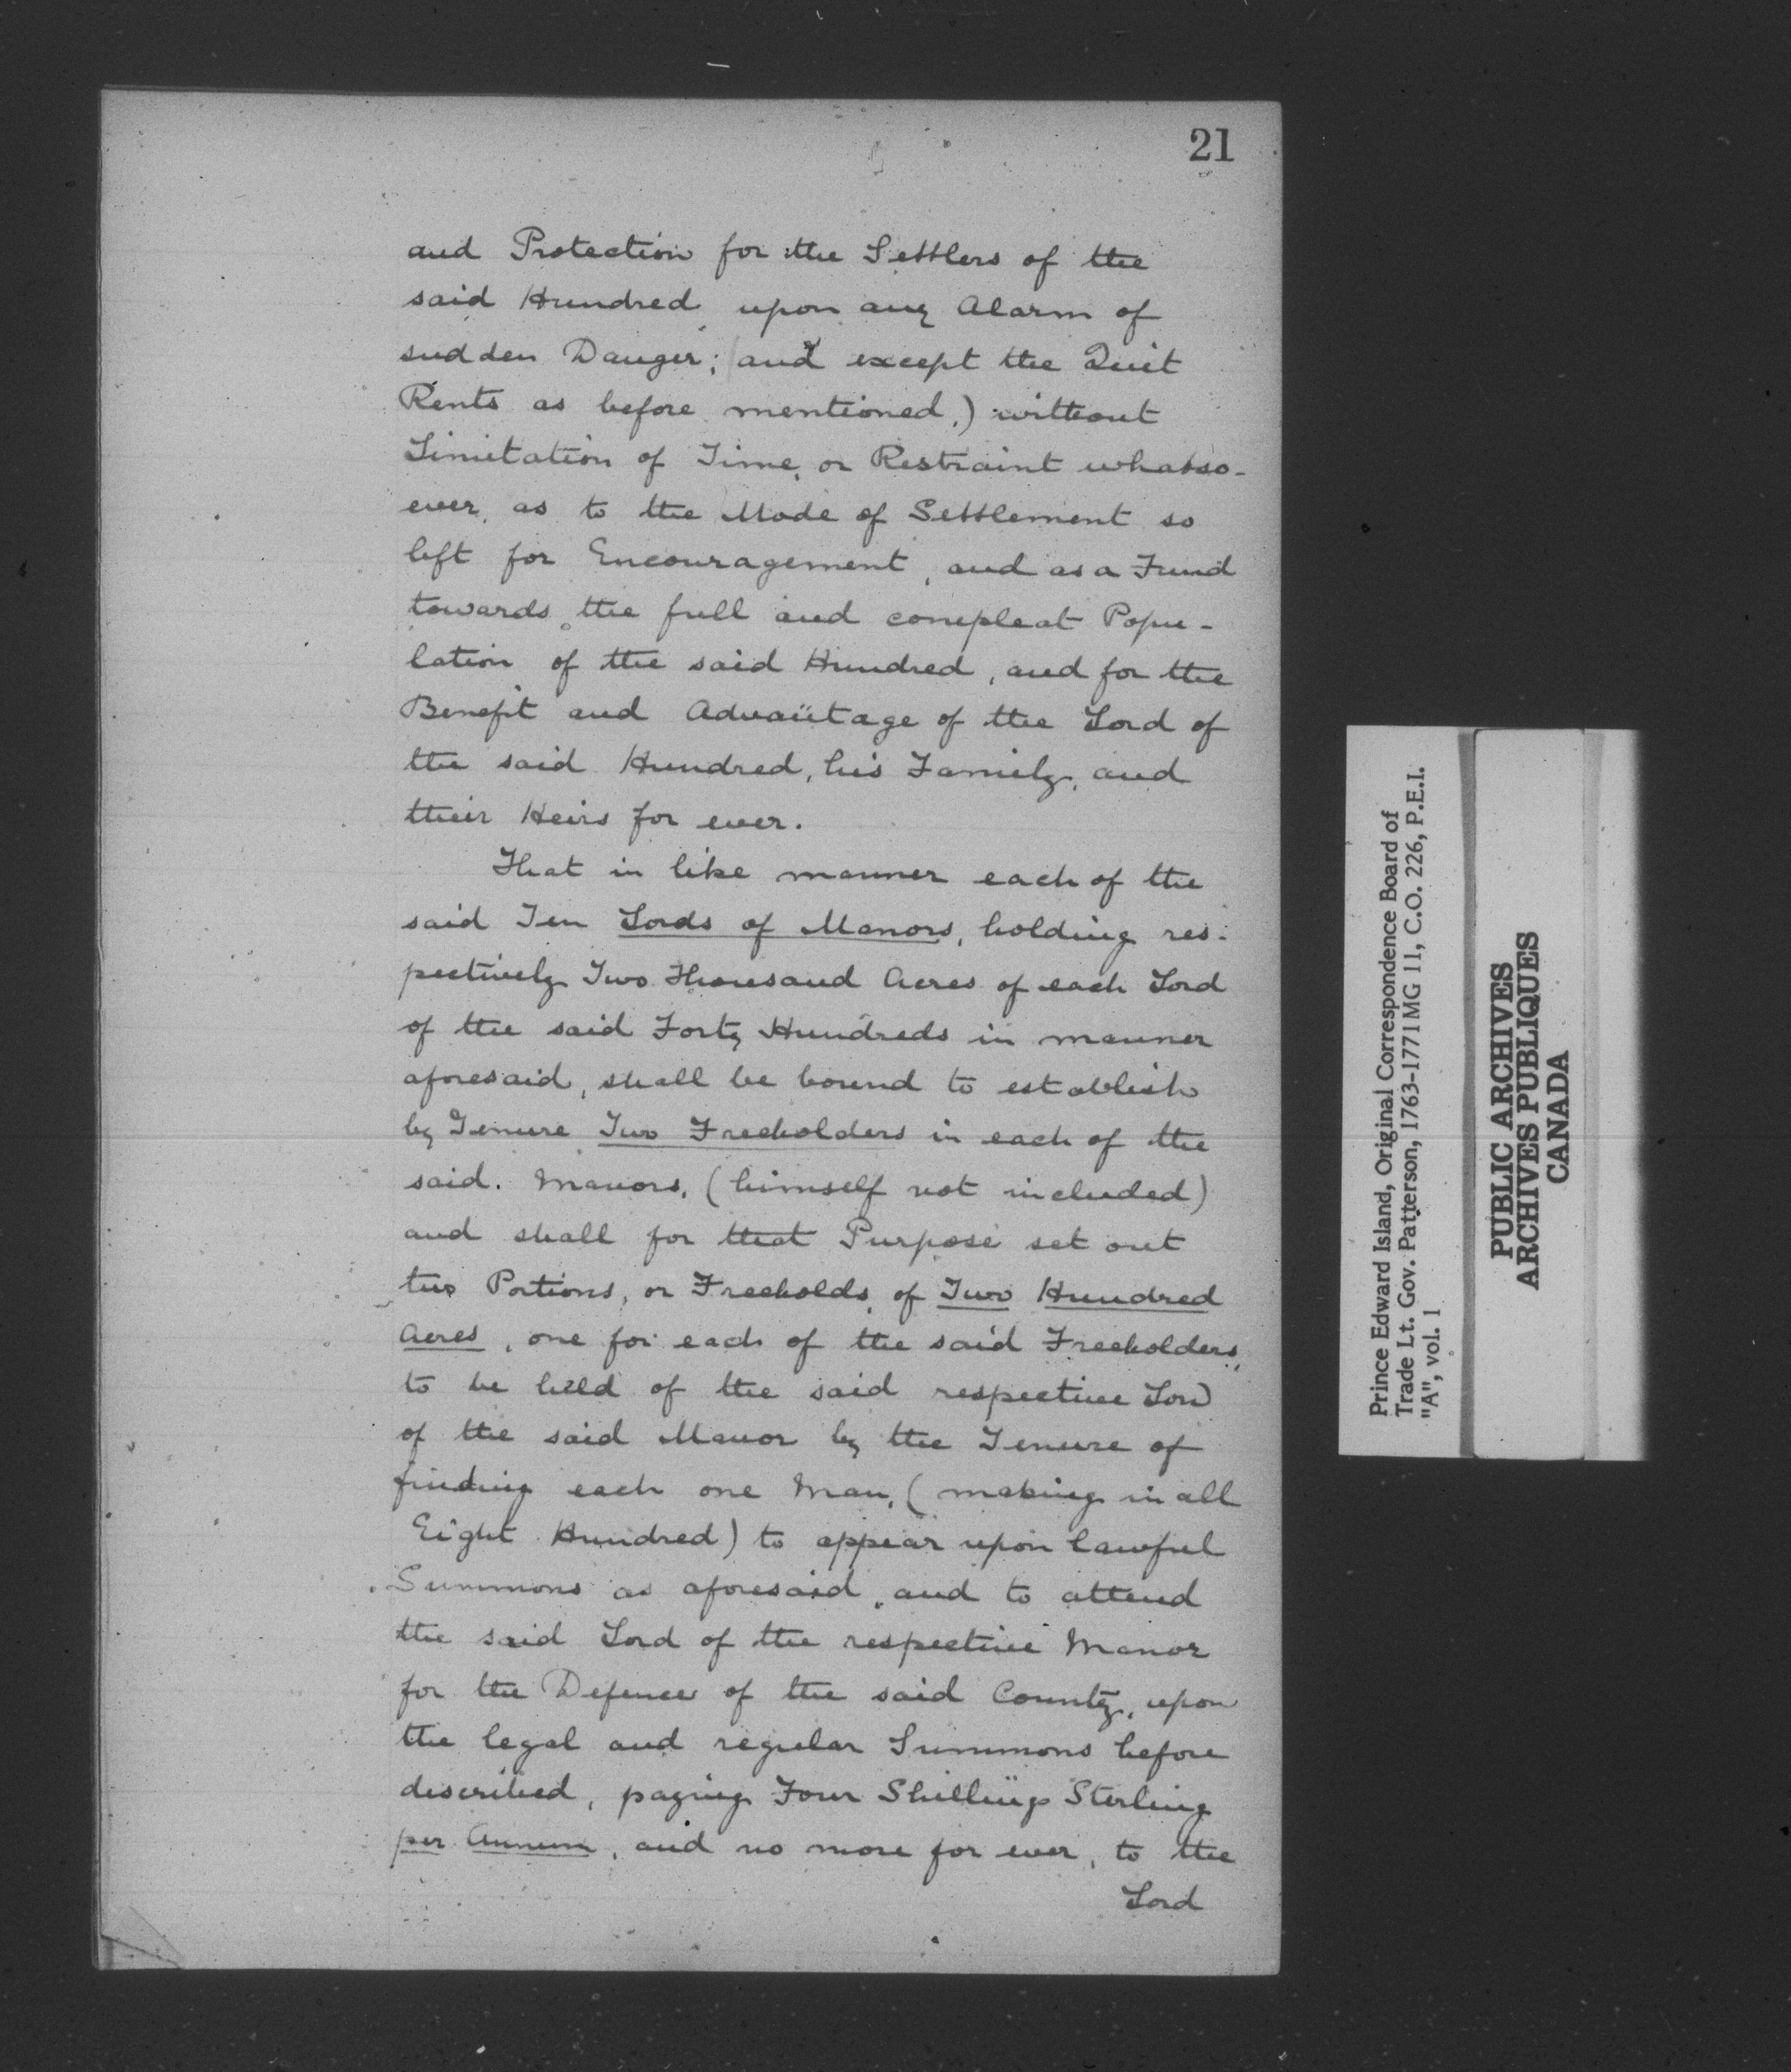 21
and Protection for the Settlers of the
said Hundred upon any Alarm of
sudden Danger; (and except the Quit
Rents as before mentioned,) without
Limitation of Time, or Restraint whatso-
ever, as to the Mode of Settlement so
left for Encouragement, and as a Fund
towards the full and compleat Popu-
lation of the said Hundred, and for the
Benefit and Advantage of the Lord of
the said Hundred, his Family, and
their Heirs for ever.
That in like manner each of the
said Ten Lords of Manors, holding res-
pectively Two Thousand Acres of each Lord
of the said Forty Hundreds in manner
aforesaid, shall be bound to establish
by Tenure Two Freeholders in each of the
said. Manors, (himself not included)
and shall for that Purpose set out
two Portions, or Freeholds, of Two Hundred
Acres, one for each of the said Freeholders,
to be held of the said respective Lord
of the said Manor by the Tenure of
finding each one Man, (making in all
Eight Hundred) to appear upon lawful
Summons as aforesaid, and to attend
the said Lord of the respective Manor
for the Defence of the said County, upon
the legal and regular Summons before
described, paying Four Shillings Sterling
per Annum, and no more for ever, to the
Lord
Prince Edward Island, Original Correspondence Board of
Trade Lt. Gov. Patterson, 1763-1771 MG 11, C.O. 226, P.E.I.
"A", vol. 1
PUBLIC ARCHIVES
ARCHIVES PUBLIQUES
CANADA